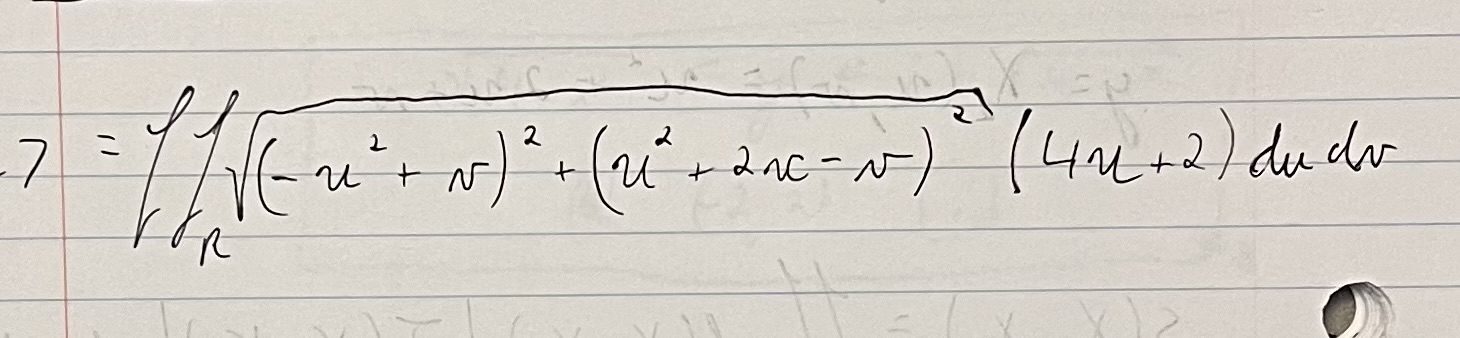 7 = ∬_R √((-u² + v)² + (u² + 2u - v)²) (4u + 2) du dv